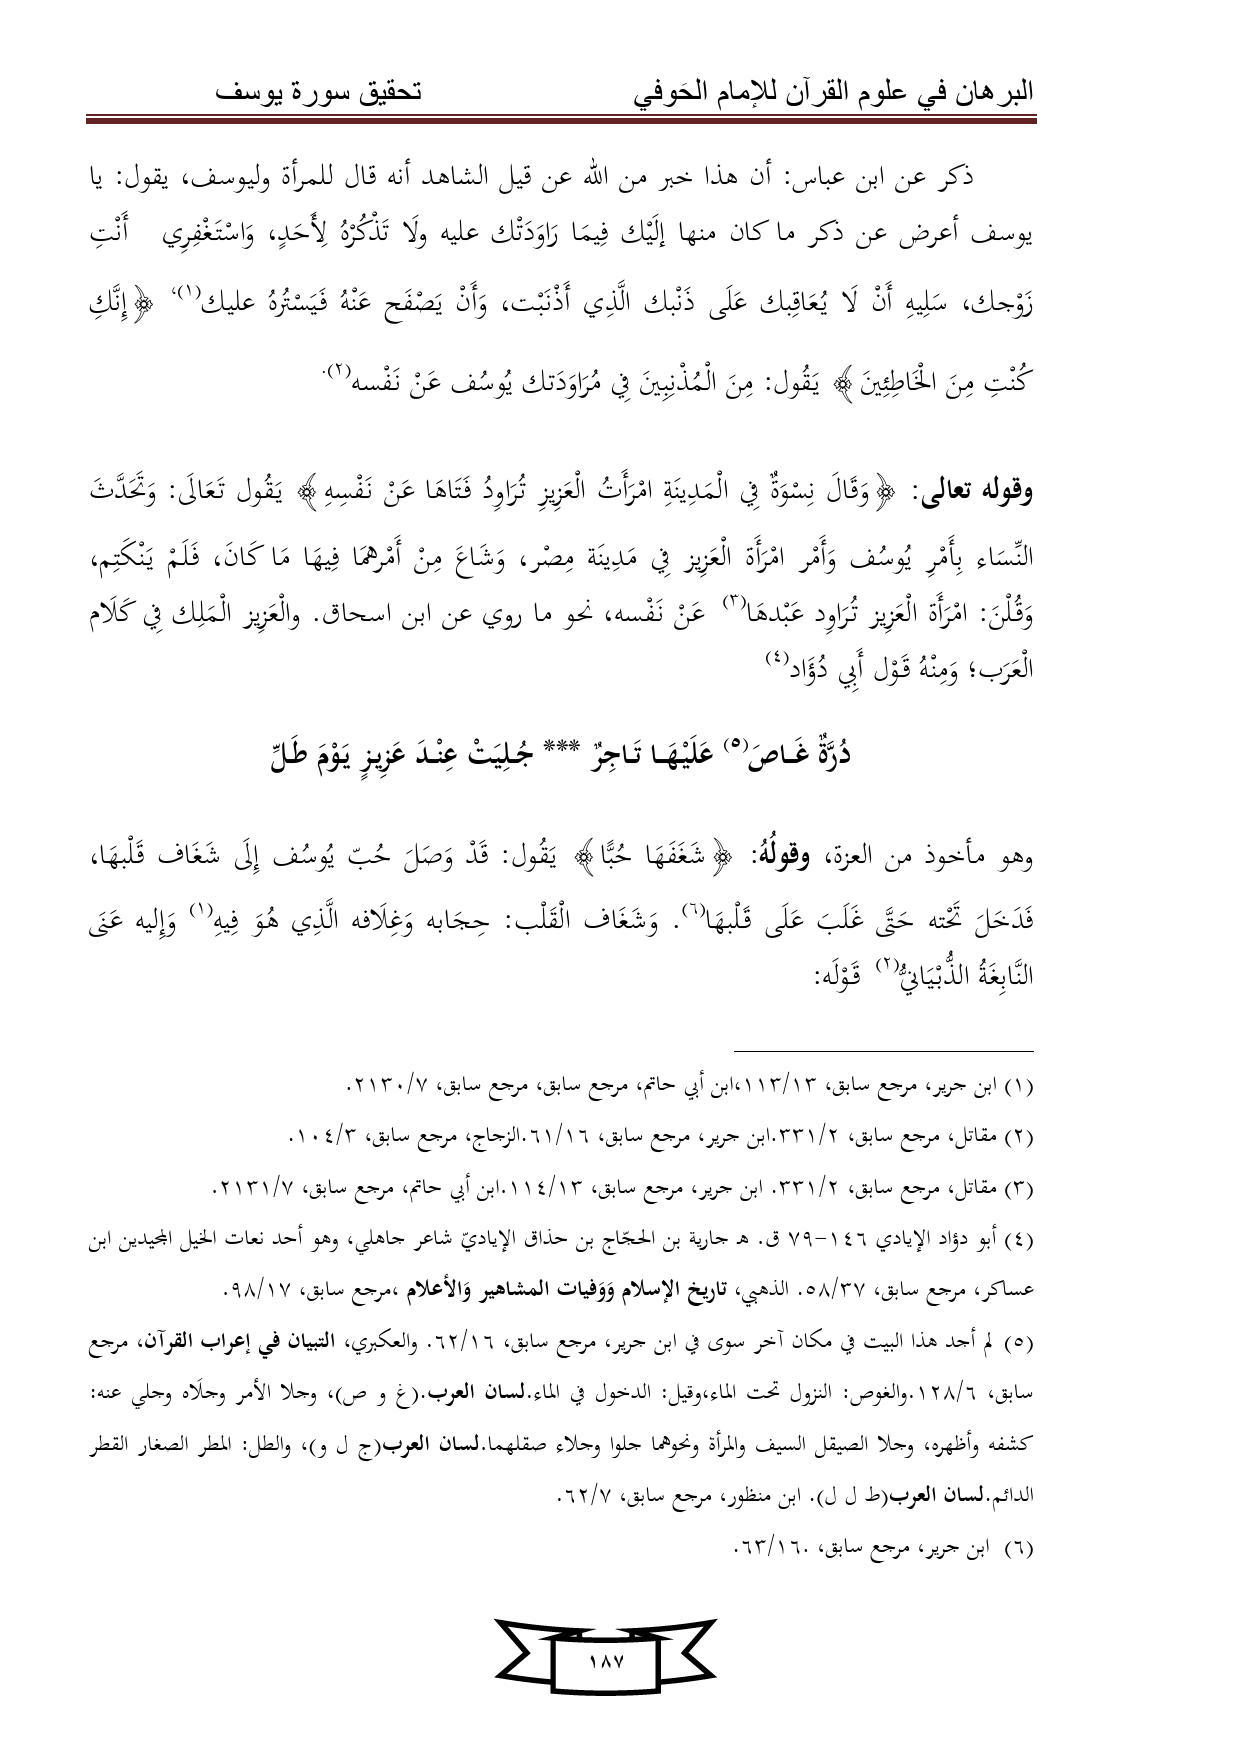 البرهان في علوم القرآن للإمام الحَوفي تحقيق سورة يوسف
ذكر عن ابن عباس: أن هذا خبر من الله عن قيل الشاهد أنه قال للمرأة وليوسف، يقول: يا
يوسف أعرض عن ذكر ما كان منها إلَيْك فِيمَا رَاوَدَتْك عليه ولَا تَذْكُرْهُ لِأَحَدٍ، وَاسْتَغْفِرِي أَنْتِ
زَوْجك، سَلِيهِ أَنْ لَا يُعَاقِبك عَلَى ذَنْبك الَّذِي أَذْنَبْت، وَأَنْ يَصْفَح عَنْهُ فَيَسْتُرهُ عليك(١)، ﴿إِنَّكِ
كُنْتِ مِنَ الْخَاطِئِينَ﴾ يَقُول: مِنَ الْمُذْنِبِينَ فِي مُرَاوَدَتك يُوسُف عَنْ نَفْسه(٢).
وقوله تعالى: ﴿وَقَالَ نِسْوَةٌ فِي الْمَدِينَةِ امْرَأَتُ الْعَزِيزِ تُرَاوِدُ فَتَاهَا عَنْ نَفْسِهِ﴾ يَقُول تَعَالَى: وَتَحَدَّثَ
النِّسَاء بِأَمْرِ يُوسُف وَأَمْر امْرَأَة الْعَزِيز فِي مَدِينَة مِصْر، وَشَاعَ مِنْ أَمْرهمَا فِيهَا مَا كَانَ، فَلَمْ يَنْكَتِم،
وَقُلْنَ: امْرَأَة الْعَزِيز تُرَاوِد عَبْدهَا(٣) عَنْ نَفْسه، نحو ما روي عن ابن اسحاق. والْعَزِيز الْمَلِك فِي كَلَام
الْعَرَب؛ وَمِنْهُ قَوْل أَبِي دُؤَاد(٤)
دُرَّةٌ غَاصَ(٥) عَلَيْهَا تَاجِرٌ *** جُلِيَتْ عِنْدَ عَزِيزٍ يَوْمَ طَلِّ
وهو مأخوذ من العزة، وقولُهُ: ﴿شَغَفَهَا حُبًّا﴾ يَقُول: قَدْ وَصَلَ حُبّ يُوسُف إِلَى شَغَاف قَلْبهَا،
فَدَخَلَ تَحْته حَتَّى غَلَبَ عَلَى قَلْبهَا(٦). وَشَغَاف الْقَلْب: حِجَابه وَغِلَافه الَّذِي هُوَ فِيهِ(١) وَإِليه عَنَى
النَّابِغَةُ الذُّبْيَانِيُّ(٢) قَوْلَه:
(١) ابن جرير، مرجع سابق، ١١٣/١٣،ابن أبي حاتم، مرجع سابق، مرجع سابق، ٢١٣٠/٧.
(٢) مقاتل، مرجع سابق، ٣٣١/٢.ابن جرير، مرجع سابق، ٦١/١٦.الزجاج، مرجع سابق، ١٠٤/٣.
(٣) مقاتل، مرجع سابق، ٣٣١/٢. ابن جرير، مرجع سابق، ١١٤/١٣.ابن أبي حاتم، مرجع سابق، ٢١٣١/٧.
(٤) أبو دؤاد الإيادي ١٤٦-٧٩ ق. هـ جارية بن الحجّاج بن حذاق الإياديّ شاعر جاهلي، وهو أحد نعات الخيل المجيدين ابن
عساكر، مرجع سابق، ٥٨/٣٧. الذهبي، تاريخ الإسلام وَوَفيات المشاهير وَالأعلام ،مرجع سابق، ٩٨/١٧.
(٥) لم أجد هذا البيت في مكان آخر سوى في ابن جرير، مرجع سابق، ٦٢/١٦. والعكبري، التبيان في إعراب القرآن، مرجع
سابق، ١٢٨/٦.والغوص: النزول تحت الماء،وقيل: الدخول في الماء.لسان العرب.(غ و ص)، وجلا الأمر وجلّاه وجلي عنه:
كشفه وأظهره، وجلا الصيقل السيف والمرأة ونحوهما جلوا وجلاء صقلهما.لسان العرب(ج ل و)، والطل: المطر الصغار القطر
الدائم.لسان العرب(ط ل ل). ابن منظور، مرجع سابق، ٦٢/٧.
(٦) ابن جرير، مرجع سابق، .٦٣/١٦.
١٨٧